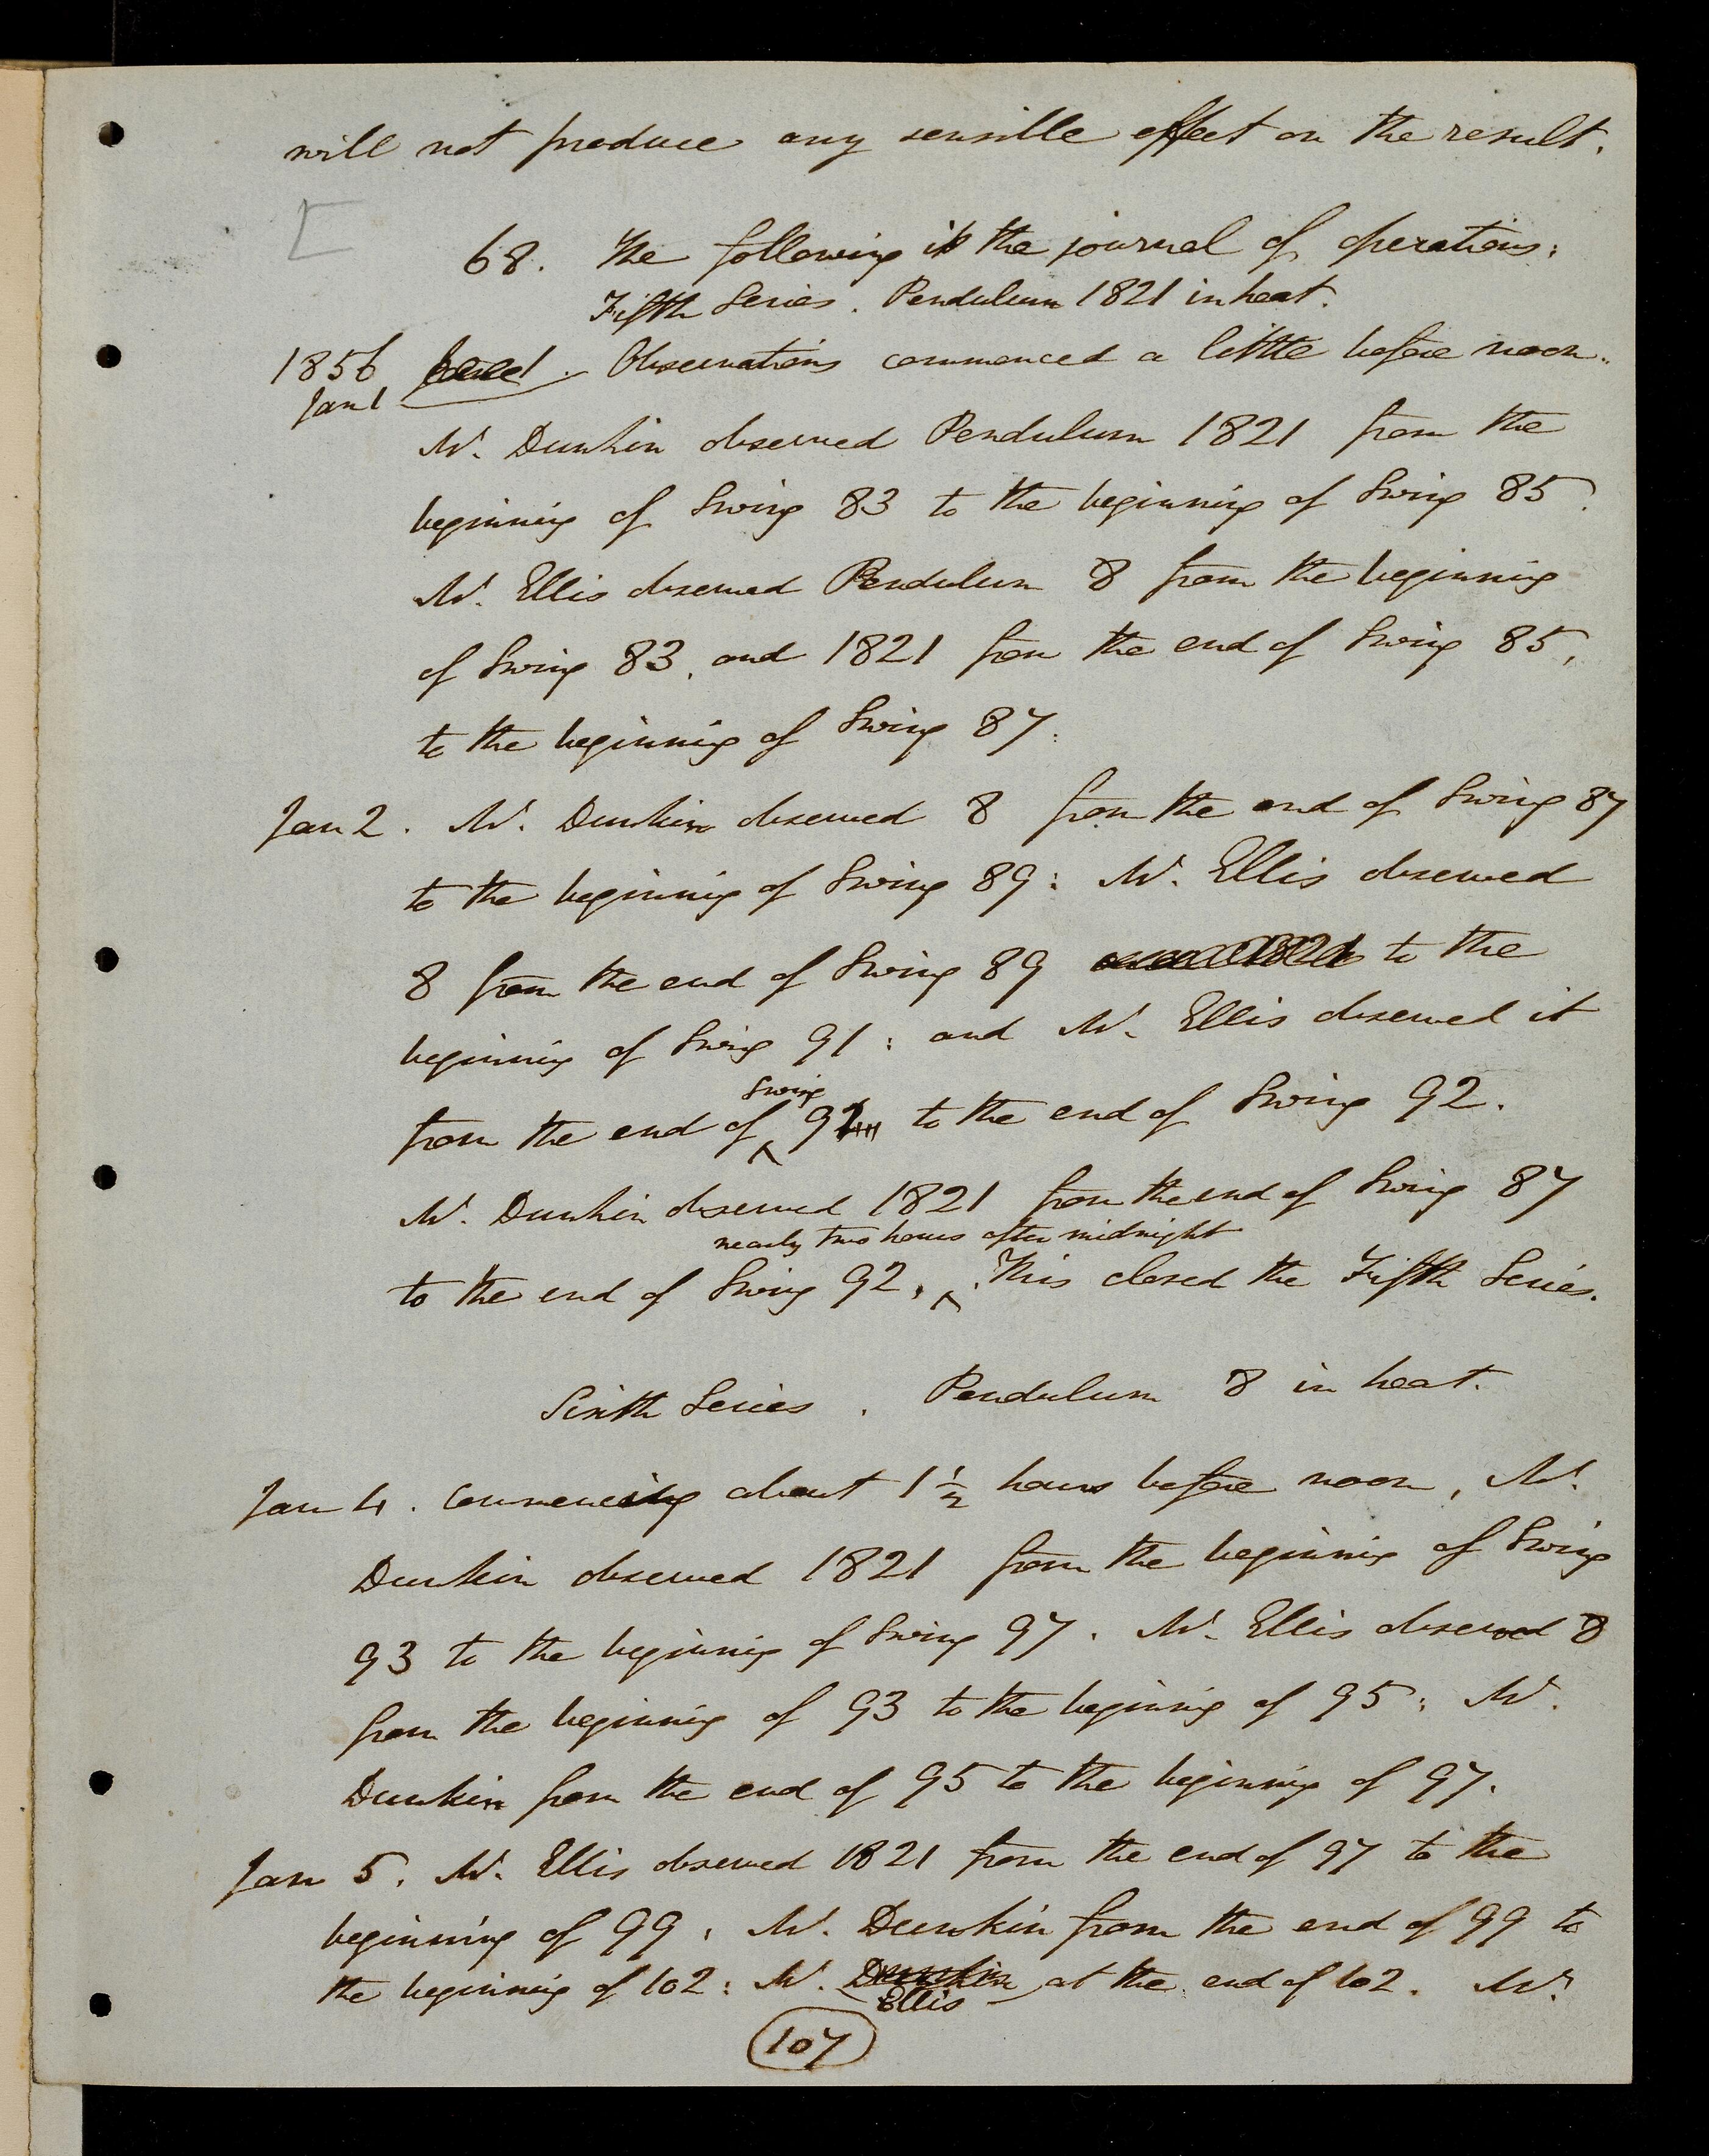 will not produce any sensible effect on the result.
68. The following is the journal of operations:
Fifth Series. Pendulum 1821 in heat.
1856 Observations commenced a little before noon.
Jan 1
Mr. Dunkin observed Pendulum 1821 from the
beginning of Swing 83 to the beginning of Swing 85.
Mr. Ellis observed Pendulum 8 from the beginning
of Swing 83, and 1821 from the end of Swing 85,
to the beginning of Swing 87.
Jan 2. Mr. Dunkin observed 8 from the end of Swing 87
to the beginning of Swing 89: Mr. Ellis observed
8 from the end of Swing 89 to the
beginning of Swing 91: and Mr. Ellis observed it
swing
from the end of 91 to the end of Swing 92.
Mr. Dunkin observed 1821 from the end of Swing 87
nearly two hours after midnight
to the end of Swing 92. This closed the Fifth Series.
Sixth Series. Pendulum 8 in heat.
Jan 4. Commencing about 1½ hours before noon, Mr.
Dunkin observed 1821 from the beginning of Swing
93 to the beginning of Swing 97. Mr. Ellis observed 8
from the beginning of 93 to the beginning of 95: Mr.
Dunkin from the end of 95 to the beginning of 97.
Jan 5. Mr. Ellis observed 1821 from the end of 97 to the
beginning of 99: Mr. Dunkin from the end of 99 to
the beginning of 102: Mr. Dunkin at the end of 102. Mr.
Ellis
107